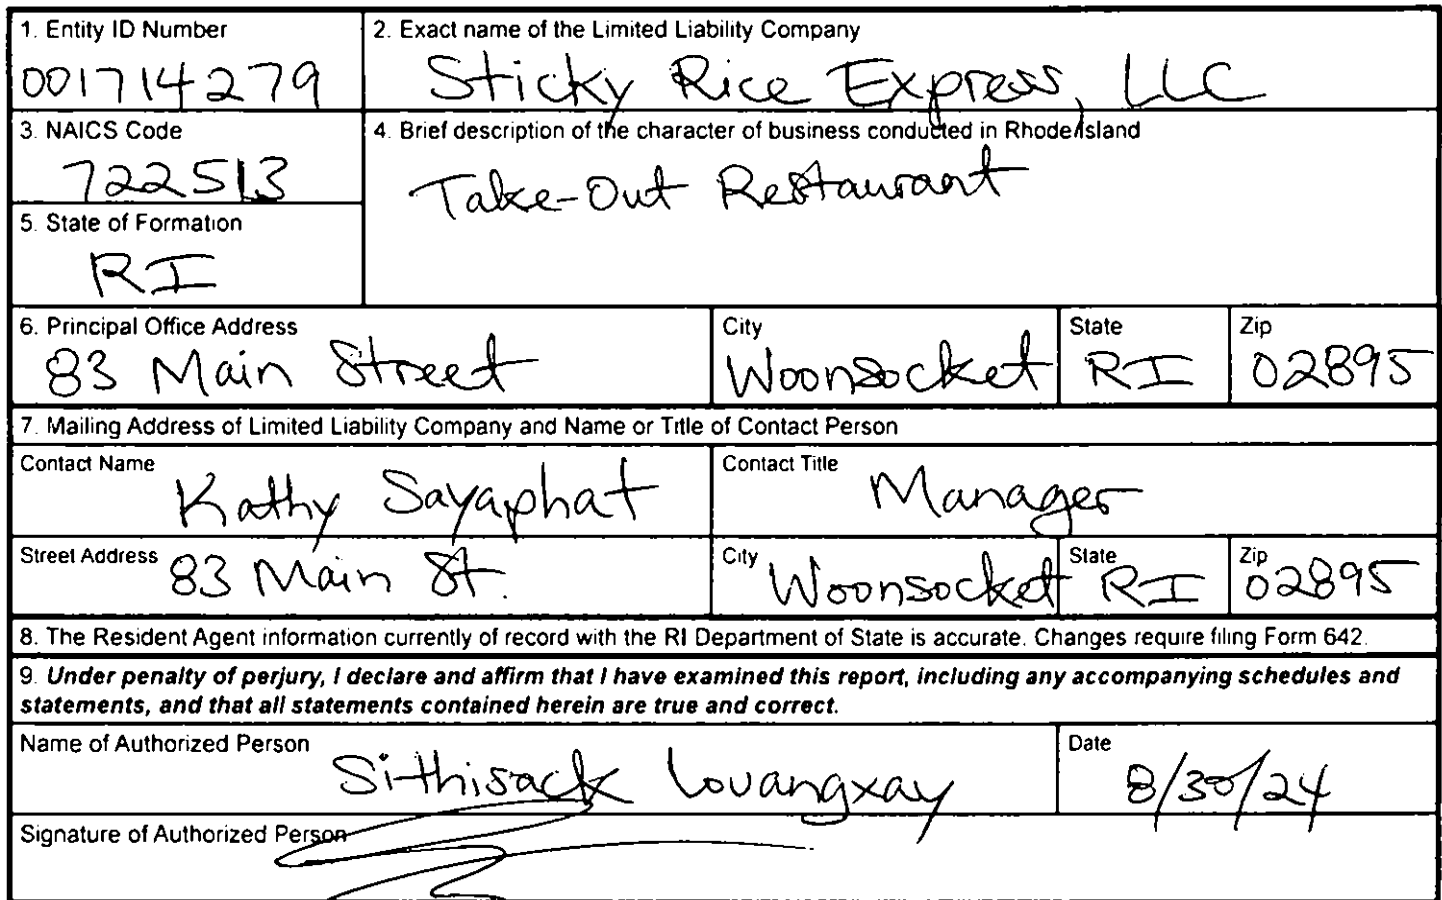 1. Entity ID Number
001714279
2. Exact name of the Limited Liability Company
Sticky Rice Express, LLC
3. NAICS Code
722513
4. Brief description of the character of business conducted in Rhode Island
Take-Out Restaurant
5. State of Formation
RI
6. Principal Office Address
83 Main Street
City
Woonsocket
State
RI
Zip
02895
7. Mailing Address of Limited Liability Company and Name or Title of Contact Person
Contact Name
Kathy Sayaphat
Contact Title
Manager
Street Address
83 Main St.
City
Woonsocket
State
RI
Zip
02895
8. The Resident Agent information currently of record with the RI Department of State is accurate. Changes require filing Form 642.
9. Under penalty of perjury, I declare and affirm that I have examined this report, including any accompanying schedules and
statements, and that all statements contained herein are true and correct.
Name of Authorized Person
Sithisack Lovangxay
Date
8/30/24
Signature of Authorized Person